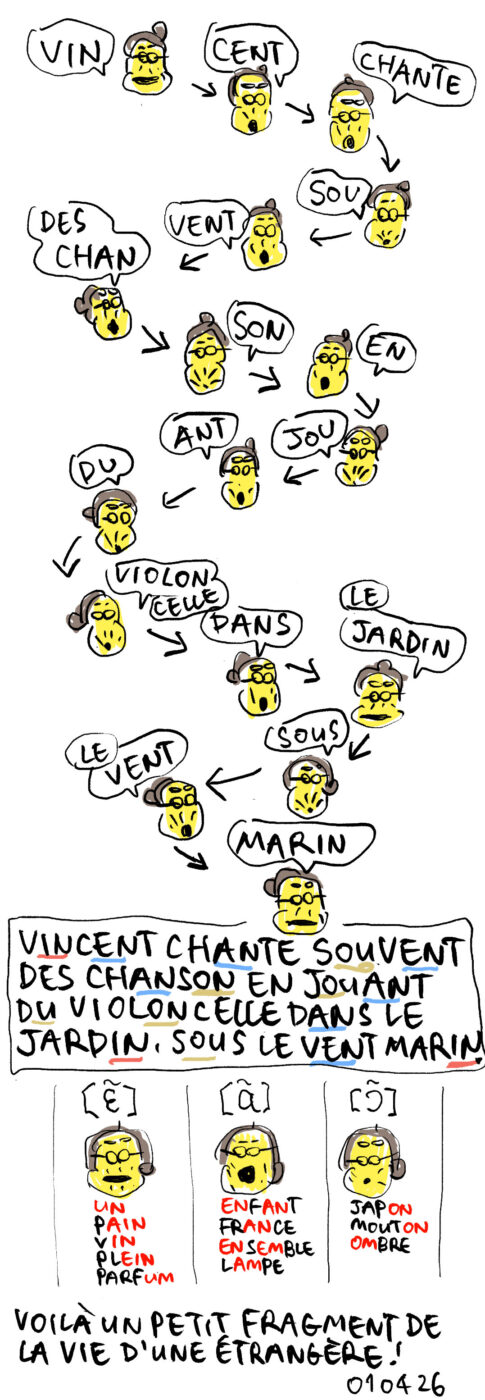 VIN
CENT
CHANTE
SOU
VENT
DES
CHAN
SON
EN
JOU
ANT
DU
VIOLON
CELLE
DANS
LE
JARDIN
SOUS
LE
VENT
MARIN
VINCENT CHANTE SOUVENT
DES CHANSON EN JOUANT
DU VIOLONCELLE DANS LE
JARDIN, SOUS LE VENT MARIN!
[ɛ̃]
UN
PAIN
VIN
PLEIN
PARFUM
[ɑ̃]
ENFANT
FRANCE
ENSEMBLE
LAMPE
[ɔ̃]
JAPON
MOUTON
OMBRE
VOILÀ UN PETIT FRAGMENT DE
LA VIE D'UNE ÉTRANGÈRE!
010426